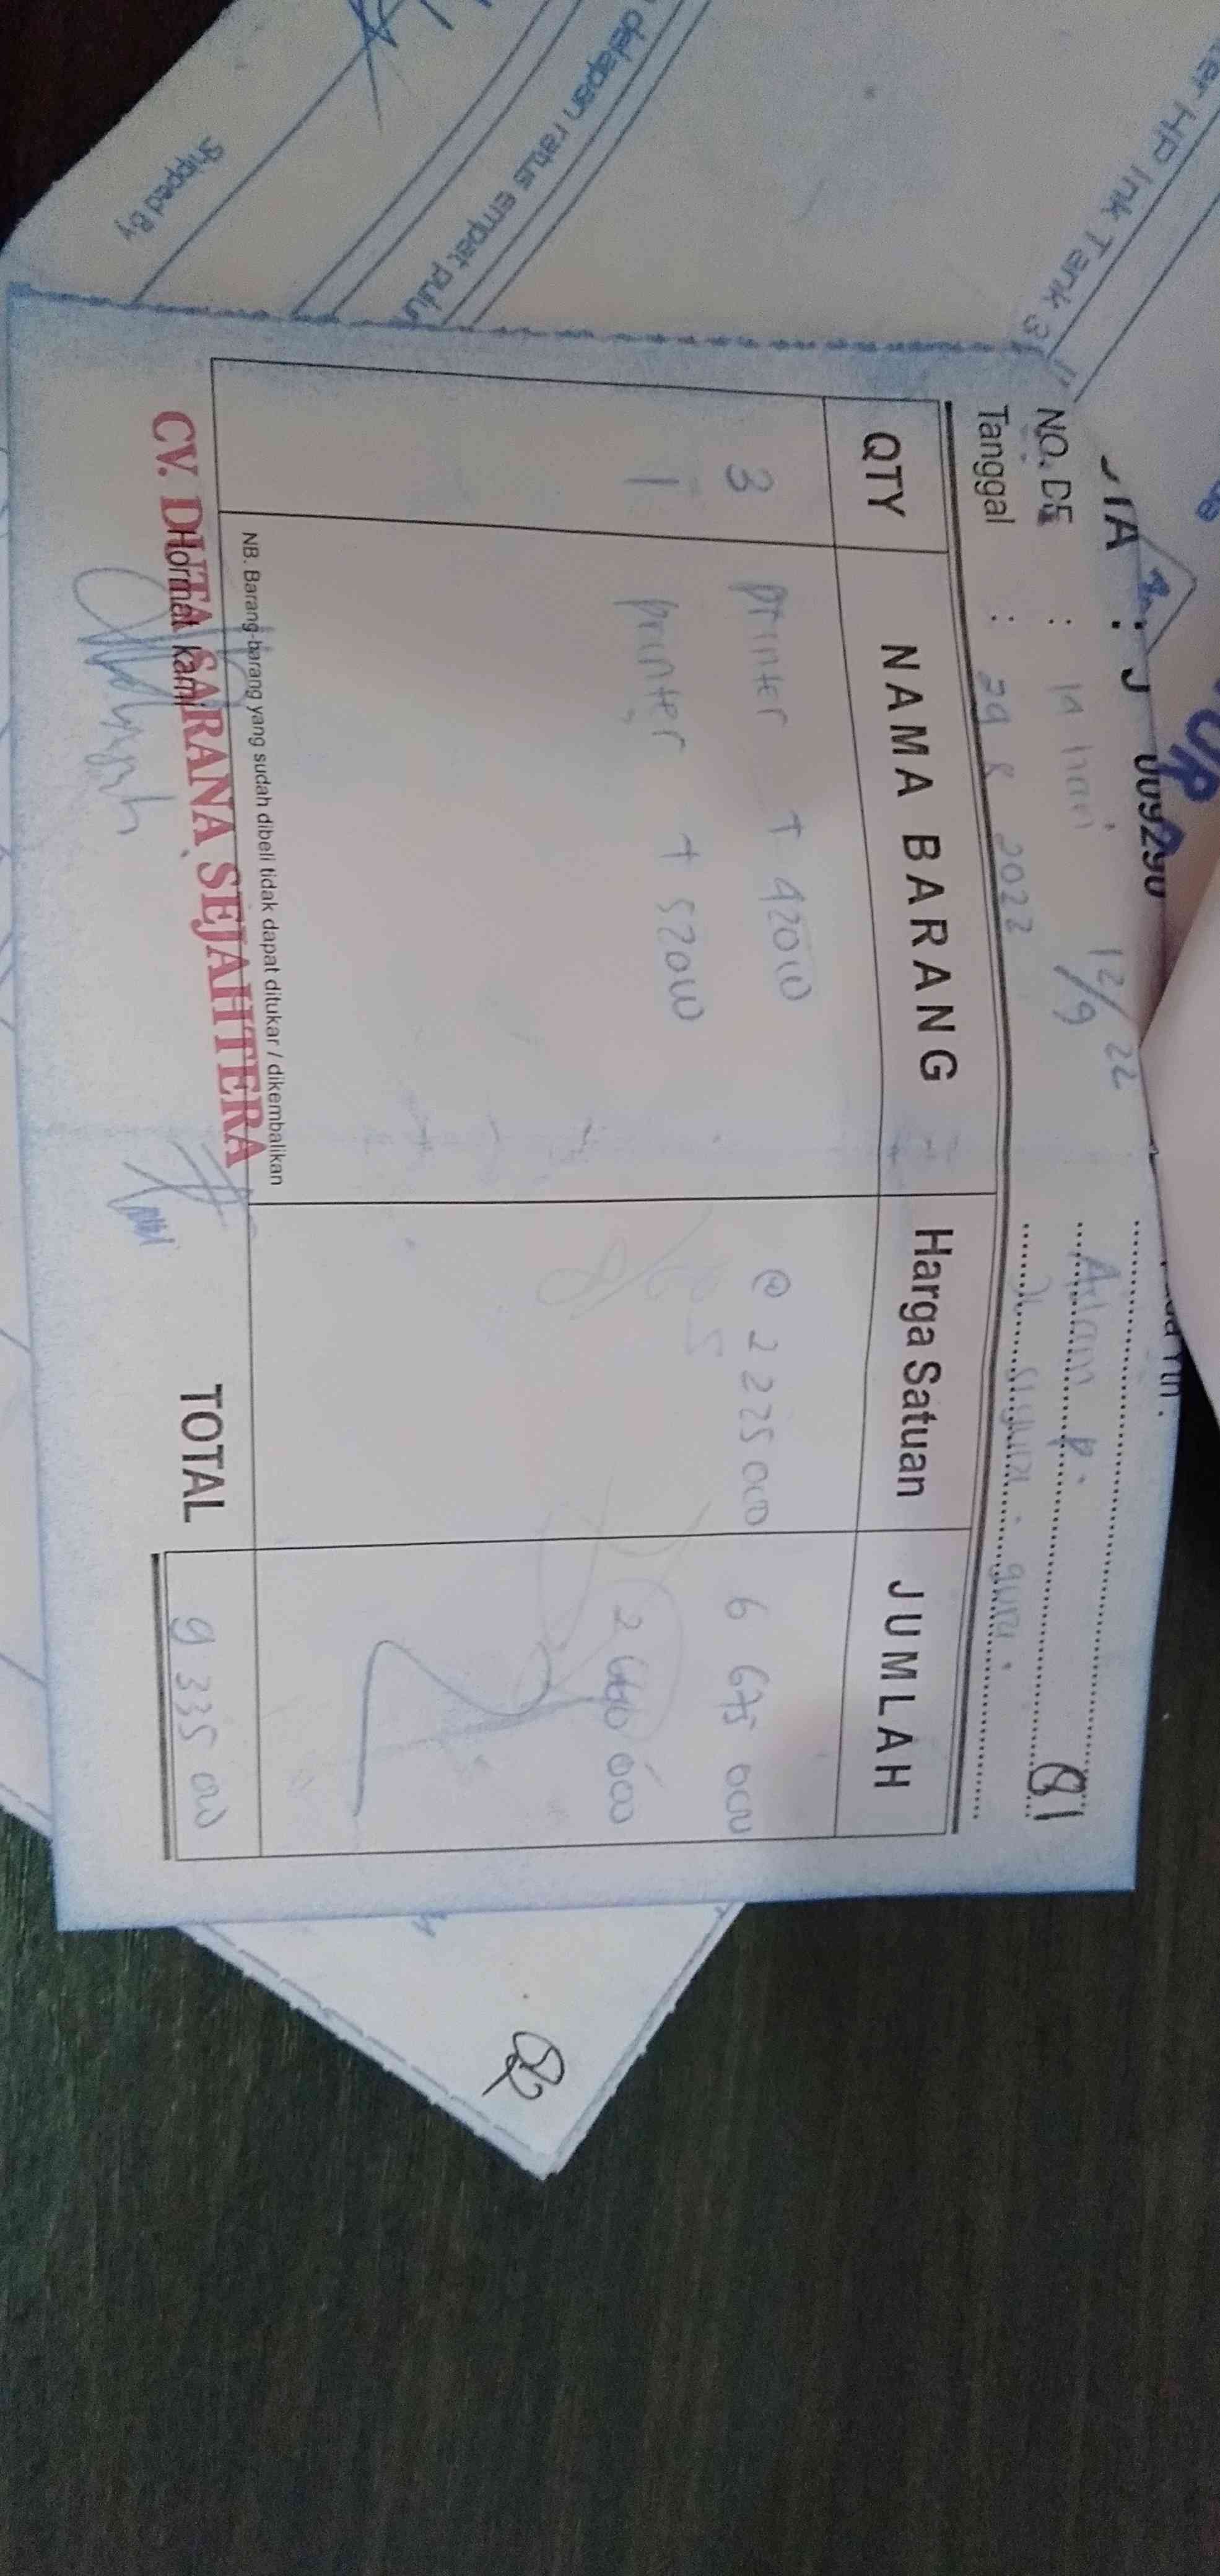 009290
NO. DE : 14 hari 12/9 22
Tanggal : 29 8 2022
Adam P.
QTY NAMA BARANG Harga Satuan JUMLAH
3 printer T 420W @ 2 225 000 6 675 000
1 printer T 520W 2 660 000
NB. Barang-barang yang sudah dibeli tidak dapat ditukar / dikembalikan
TOTAL 9 335 000
Hormat kami
CV. DUTA SARANA SEJAHTERA
Shipped By
delapan ratus empat pulu
ter HP Ink Tank 3